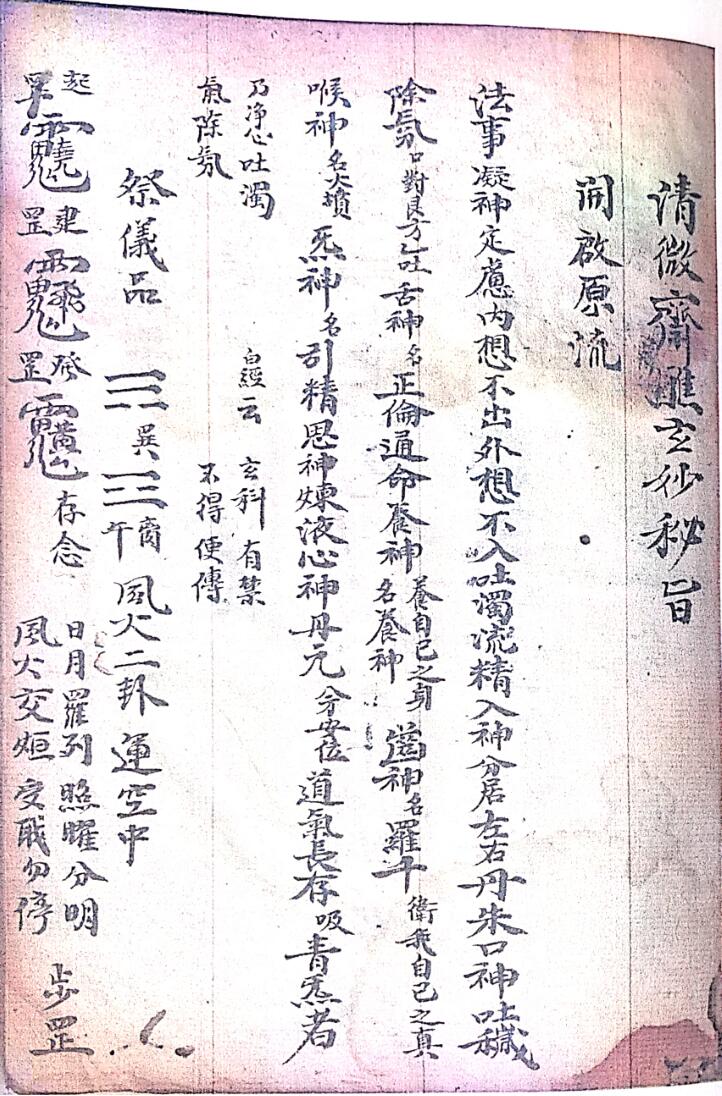 清微齋醮玄妙秘旨
開啟原流
法事凝神定慮內想不出外想不入吐濁流精入神分居左右丹朱口神吐穢
除氛口對良方乙吐舌神名正倫通命養神養自己之身名養神齒神名羅千衛我自己之真
喉神名火墳炁神名引精思神煉液心神丹元分安位道氣長存吸青炁若
乃淨心吐濁氣除氛 白經云 玄科有禁不得使傳
祭儀品 巽 午 風火二卦運空中
起罡 建罡 發罡 存念 日月羅列照曜分明風火交炬受職勿停 步罡